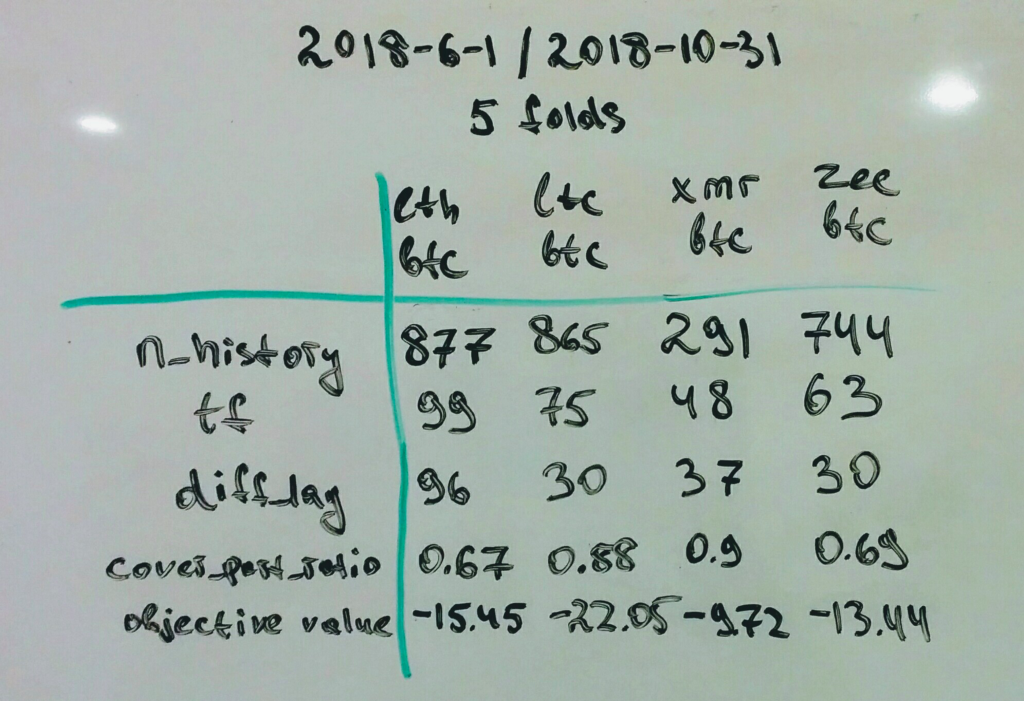 2018-6-1 / 2018-10-31
5 folds
eth ltc xmr zec
btc btc btc btc
n_history 877 865 291 744
tf 99 75 48 63
diff_lag 96 30 37 30
cover_part_ratio 0.67 0.88 0.9 0.69
objective value -15.45 -22.05 -9.72 -13.44